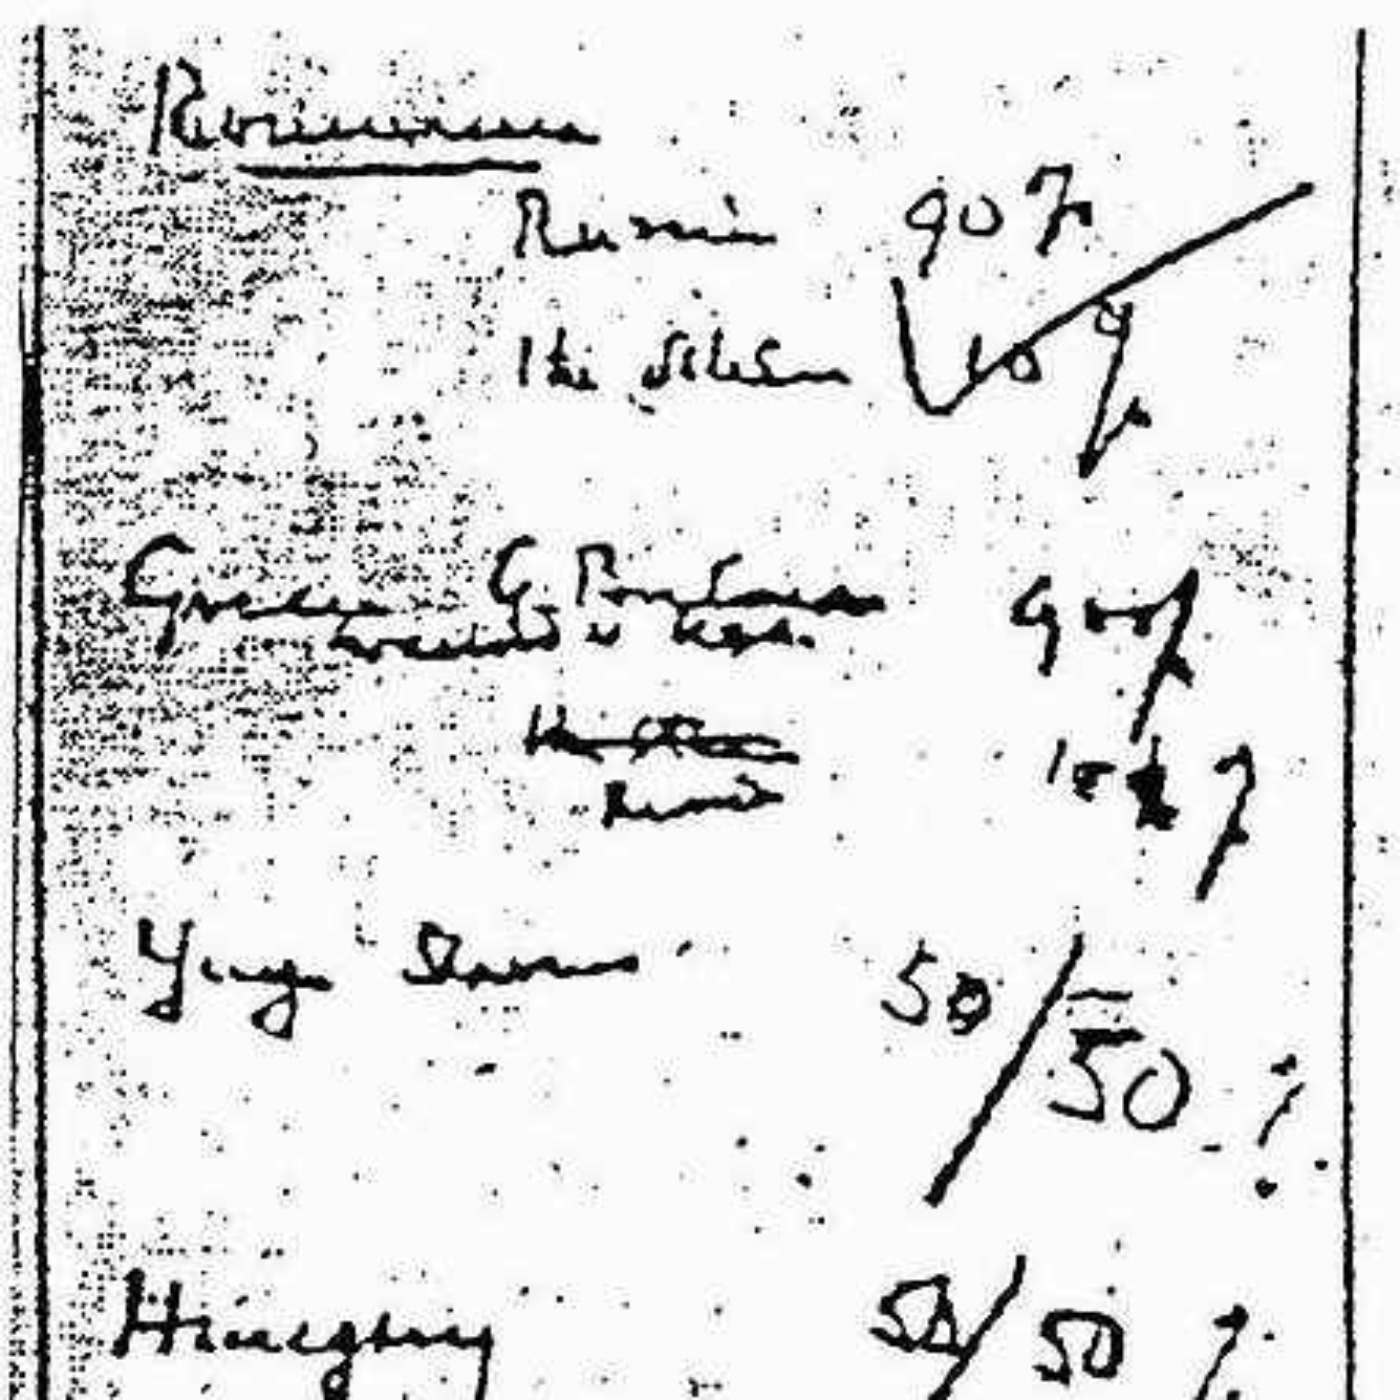 Roumania
Russia 90%
The others 10%
Greece G. Britain 90%
in accord w USA.
The others
Russia 10%
Yugo Slavia 50/50%
Hungary 50/50%